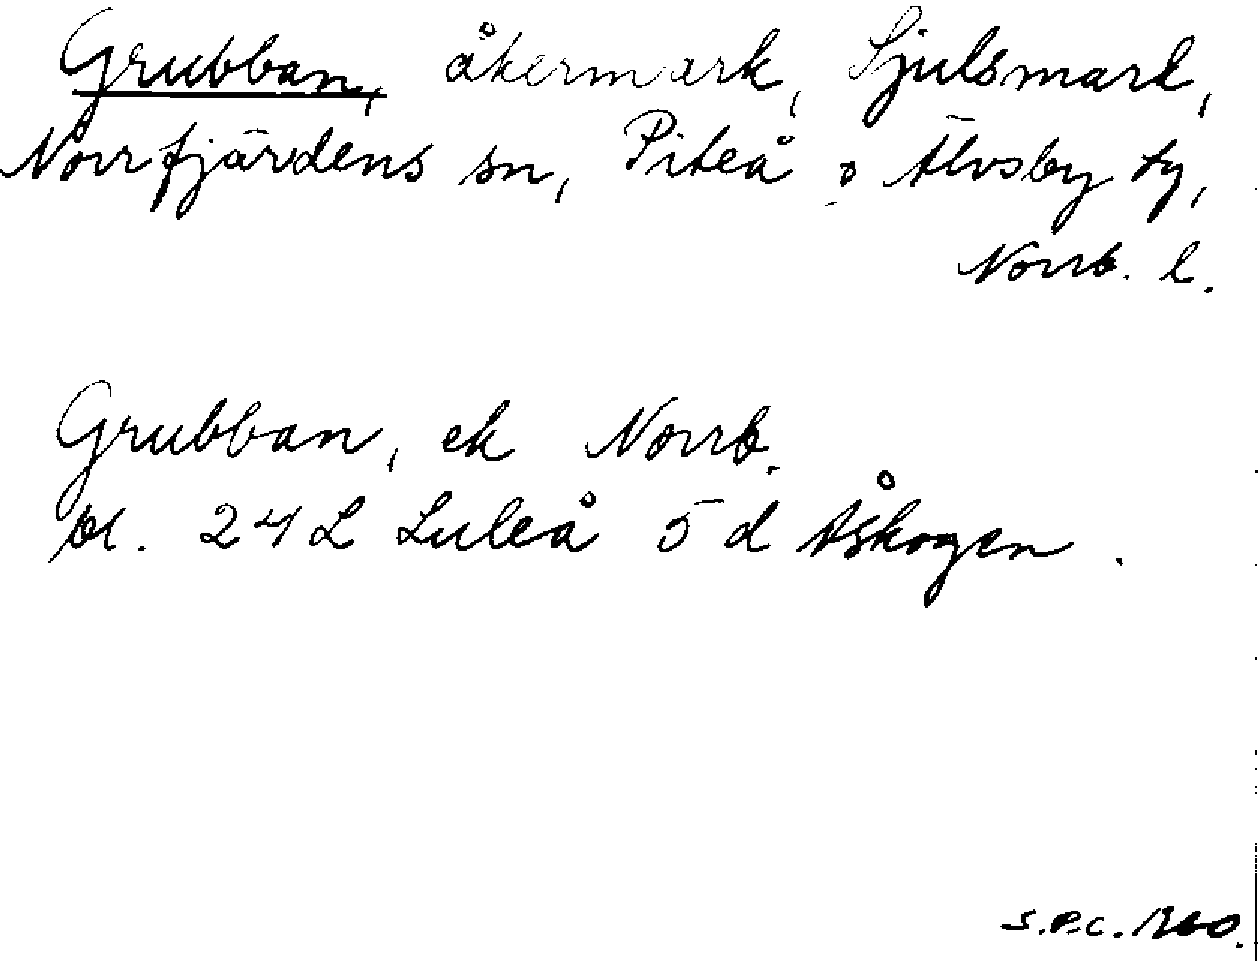 Grubban, åkermark, Sjulsmark,
Norrfjärdens sn, Piteå o Älvsby tg,
Norrb. l.
Grubban, ek Norrb.
bl. 24 L Luleå 5 d Åskogen.
S.P.C. 1960.